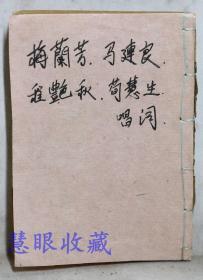 梅蘭芳、马連良、
程艷秋、荀慧生
唱词、
慧眼收藏